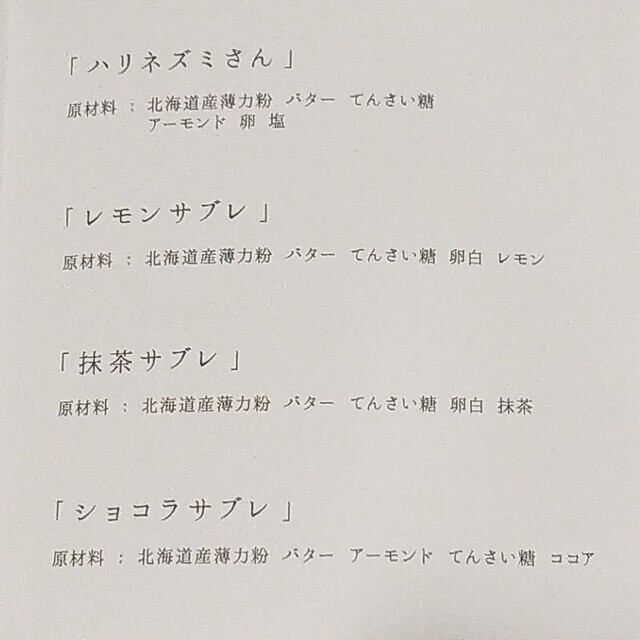 「ハリネズミさん」
原材料 : 北海道産薄力粉 バター てんさい糖
アーモンド 卵 塩
「レモンサブレ」
原材料 : 北海道産薄力粉 バター てんさい糖 卵白 レモン
「抹茶サブレ」
原材料 : 北海道産薄力粉 バター てんさい糖 卵白 抹茶
「ショコラサブレ」
原材料 : 北海道産薄力粉 バター アーモンド てんさい糖 ココア